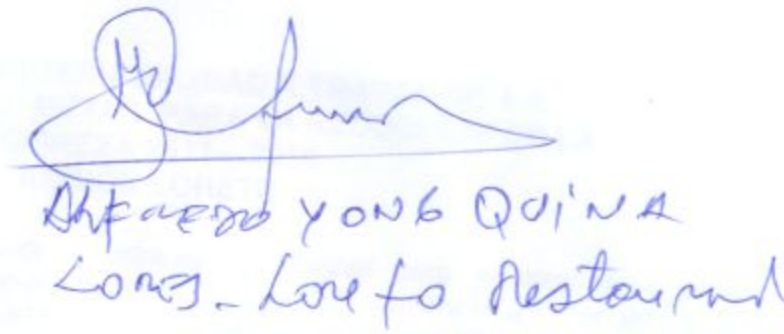 ALFREDO YONG QUINA
LORES - Loreto Restaurant